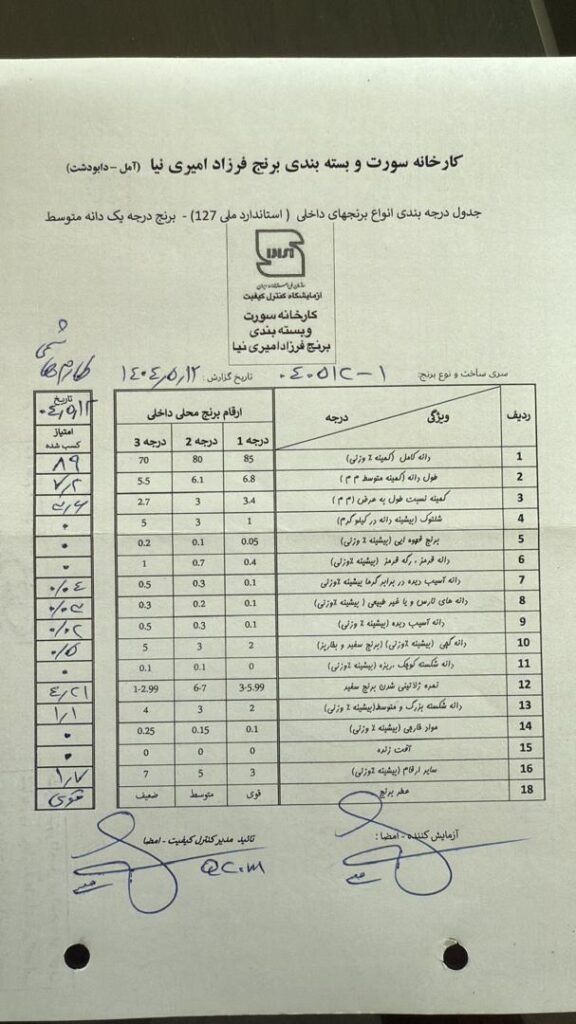 کارخانه سورت و بسته بندی برنج فرزاد امیری نیا (آمل – دابودشت)
جدول درجه بندی انواع برنجهای داخلی ( استاندارد ملی 127) - برنج درجه یک دانه متوسط
آزمایشگاه کنترل کیفیت
کارخانه سورت
وبسته بندی
برنج فرزادامیری نیا
طارم هاشمی
سری ساخت و نوع برنج: ۰۴۰۵۱۲-۱ تاریخ گزارش : ۱۴۰۴,۵,۱۲
ردیف ویژگی درجه ارقام برنج محلی داخلی تاریخ ۰۴,۵,۱۲
درجه 1 درجه 2 درجه 3 امتیاز کسب شده
1 دانه کامل (کمینه ٪ وزنی) 85 80 70 ۸۹
2 طول دانه (کمینه متوسط م م ) 6.8 6.1 5.5 ۷,۲
3 کمینه نسبت طول به عرض (م م ) 3.4 3 2.7
4 شلتوک (بیشینه دانه در کیلو گرم) 1 3 5 ۰
5 برنج قهوه ایی (بیشینه ٪ وزنی) 0.05 0.1 0.2 ۰
6 دانه قرمز ، رگه قرمز (بیشینه ٪وزنی) 0.4 0.7 1 ۰
7 دانه آسیب دیده در برابر گرما بیشینه٪وزنی 0.1 0.3 0.5 ۰/۰۴
8 دانه های نارس و یا غیر طبیعی ( بیشینه ٪وزنی) 0.1 0.2 0.3 ۰/۰۳
9 دانه آسیب دیده (بیشینه ٪ وزنی) 0.1 0.3 0.5 ۰/۰۲
10 دانه گچی (بیشینه ٪وزنی) (برنج سفید و بخارپز) 2 3 5 ۰/۵
11 دانه شکسته کوچک ،ریزه (بیشینه ٪وزنی) 0 0.1 0.1 ۰
12 نمره ژلاتینی شدن برنج سفید 3-5.99 6-7 1-2.99 ۴,۲۱
13 دانه شکسته بزرگ و متوسط(بیشینه ٪ وزنی) 2 3 4 ۱,۱
14 مواد خارجی (بیشینه ٪ وزنی) 0.1 0.15 0.25 ۰
15 آفت زنده 0 0 0 ۰
16 سایر ارقام (بیشینه ٪وزنی) 3 5 7 ۱,۷
18 عطر برنج قوی متوسط ضعیف قوی
آزمایش کننده - امضا : تائید مدیر کنترل کیفیت - امضا
QC.M